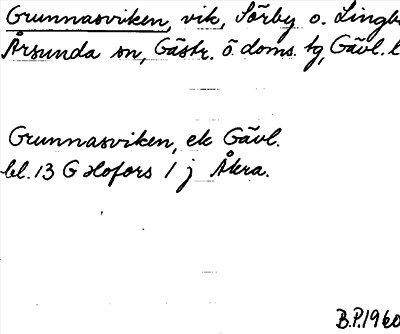 Grunnasviken, vik, Sörby o. Lingb
Årsunda sn, Gästr. ö. doms. tg, Gävl. l
Grunnasviken, ek Gävl.
bl. 13 G Hofors 1 j Åkra.
B.P. 1960